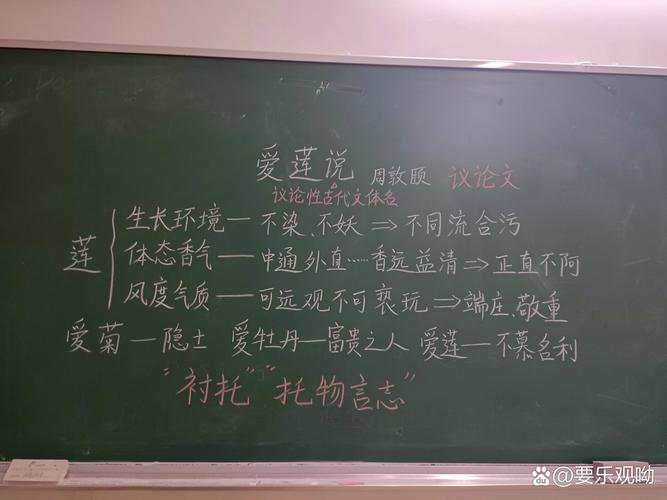 爱莲说 周敦颐 议论文
议论性古代文体名
莲
生长环境—不染、不妖⇒不同流合污
体态香气—中通外直……香远益清⇒正直不阿
风度气质—可远观不可亵玩⇒端庄、敬重
爱菊—隐士 爱牡丹—富贵之人 爱莲—不慕名利
"衬托" "托物言志"
Baidu @要乐观呦